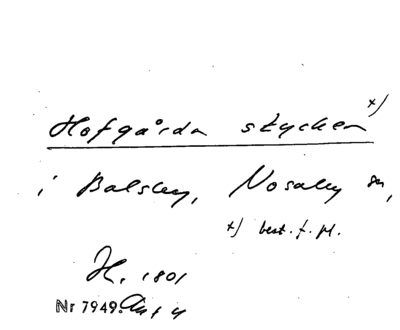 Hofgårda stycken x)
i Balsby, Nosaby sn,
x) best. f. pl.
H. 1801
Nr 7949.